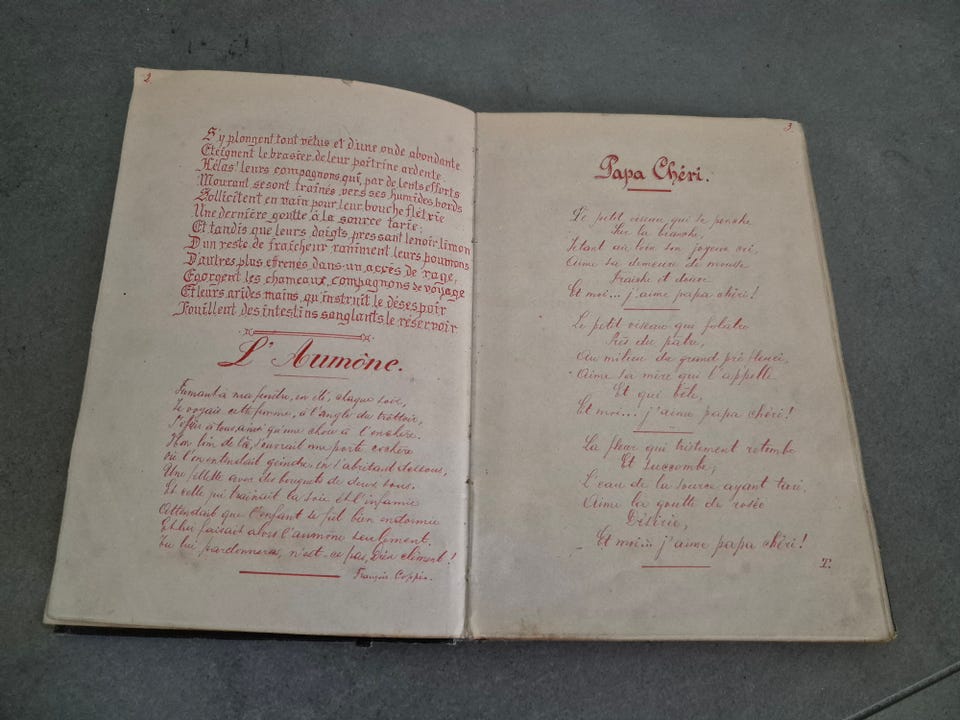 2.
S'y plongent tout vêtus et d'une onde abondante
Eteignent le brasier de leur poitrine ardente.
Hélas! leurs compagnons qui, par de lents efforts
Mourant se sont traînés vers ses humides bords
Sollicitent en vain pour leur bouche flétrie
Une dernière goutte à la source tarie;
Et tandis que leurs doigts, pressant le noir limon
D'un reste de fraîcheur raniment leurs poumons
D'autres plus effrénés dans un accès de rage,
Egorgent les chameaux, compagnons de voyage
Et leurs arides mains, qu'instruit le désespoir
Fouillent des intestins sanglants le réservoir
L'Aumône.
Fumant à ma fenêtre, en été, chaque soir,
Je voyais cette femme, à l'angle du trottoir,
S'offrir à tous, ainsi qu'une chose à l'enchère.
Non loin de là, s'ouvrait une porte cochère
où l'on entendait geindre, en s'abritant dessous,
Une fillette avec des bouquets de deux sous.
Et celle qui traînait la soie et l'infamie
Attendait que l'enfant se fût bien endormie
Et lui faisait alors l'aumône seulement.
Tu lui pardonneras, n'est-ce pas, Dieu clément!
François Coppée.
3.
Papa Chéri.
Le petit oiseau, qui se penche
Sur la branche,
Jetant au loin son joyeux cri,
Aime sa demeure de mousse
Fraîche et douce
Et moi... j'aime papa chéri!
Le petit oiseau qui folâtre
Près du pâtre,
Au milieu du grand pré fleuri,
Aime sa mère qui l'appelle
Et qui bêle,
Et moi... j'aime papa chéri!
La fleur qui tristement retombe
Et succombe,
L'eau de la source ayant tari,
Aime la goutte de rosée
Désirée,
Et moi... j'aime papa chéri!
T.